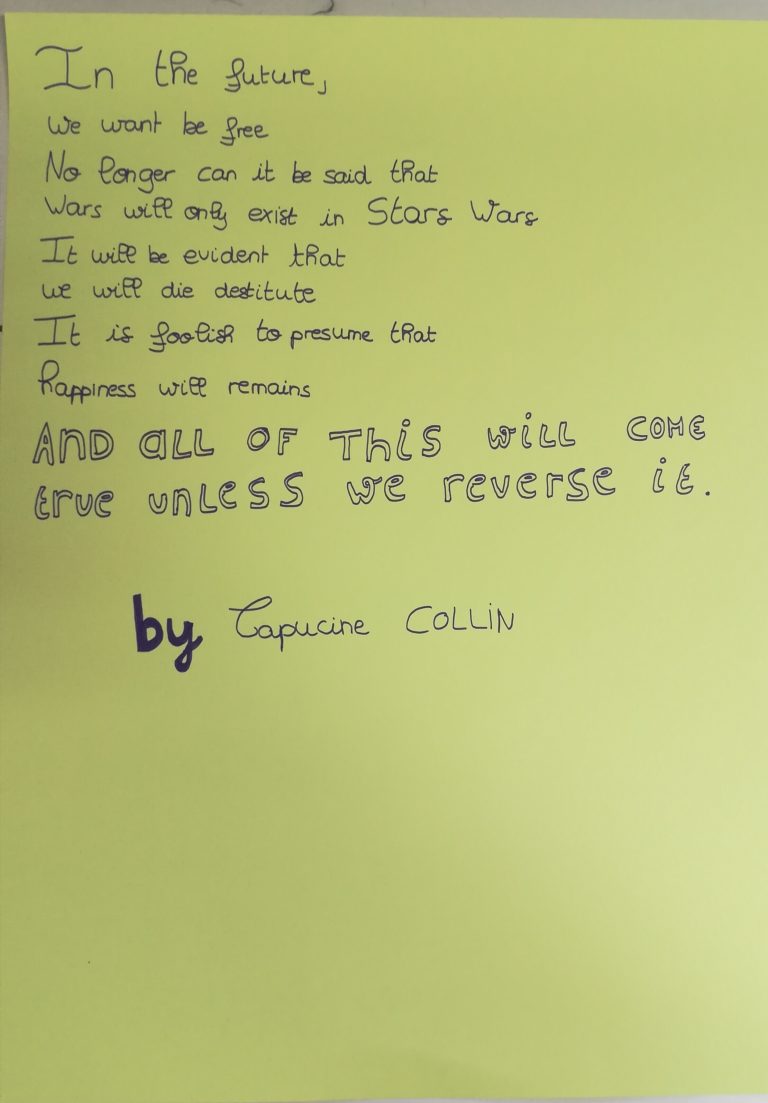 In the future,
we want be free
No longer can it be said that
Wars will only exist in Stars Wars
It will be evident that
we will die destitute
It is foolish to presume that
happiness will remains
AND all OF This will COME
true unless we reverse it.
by Capucine COLLIN